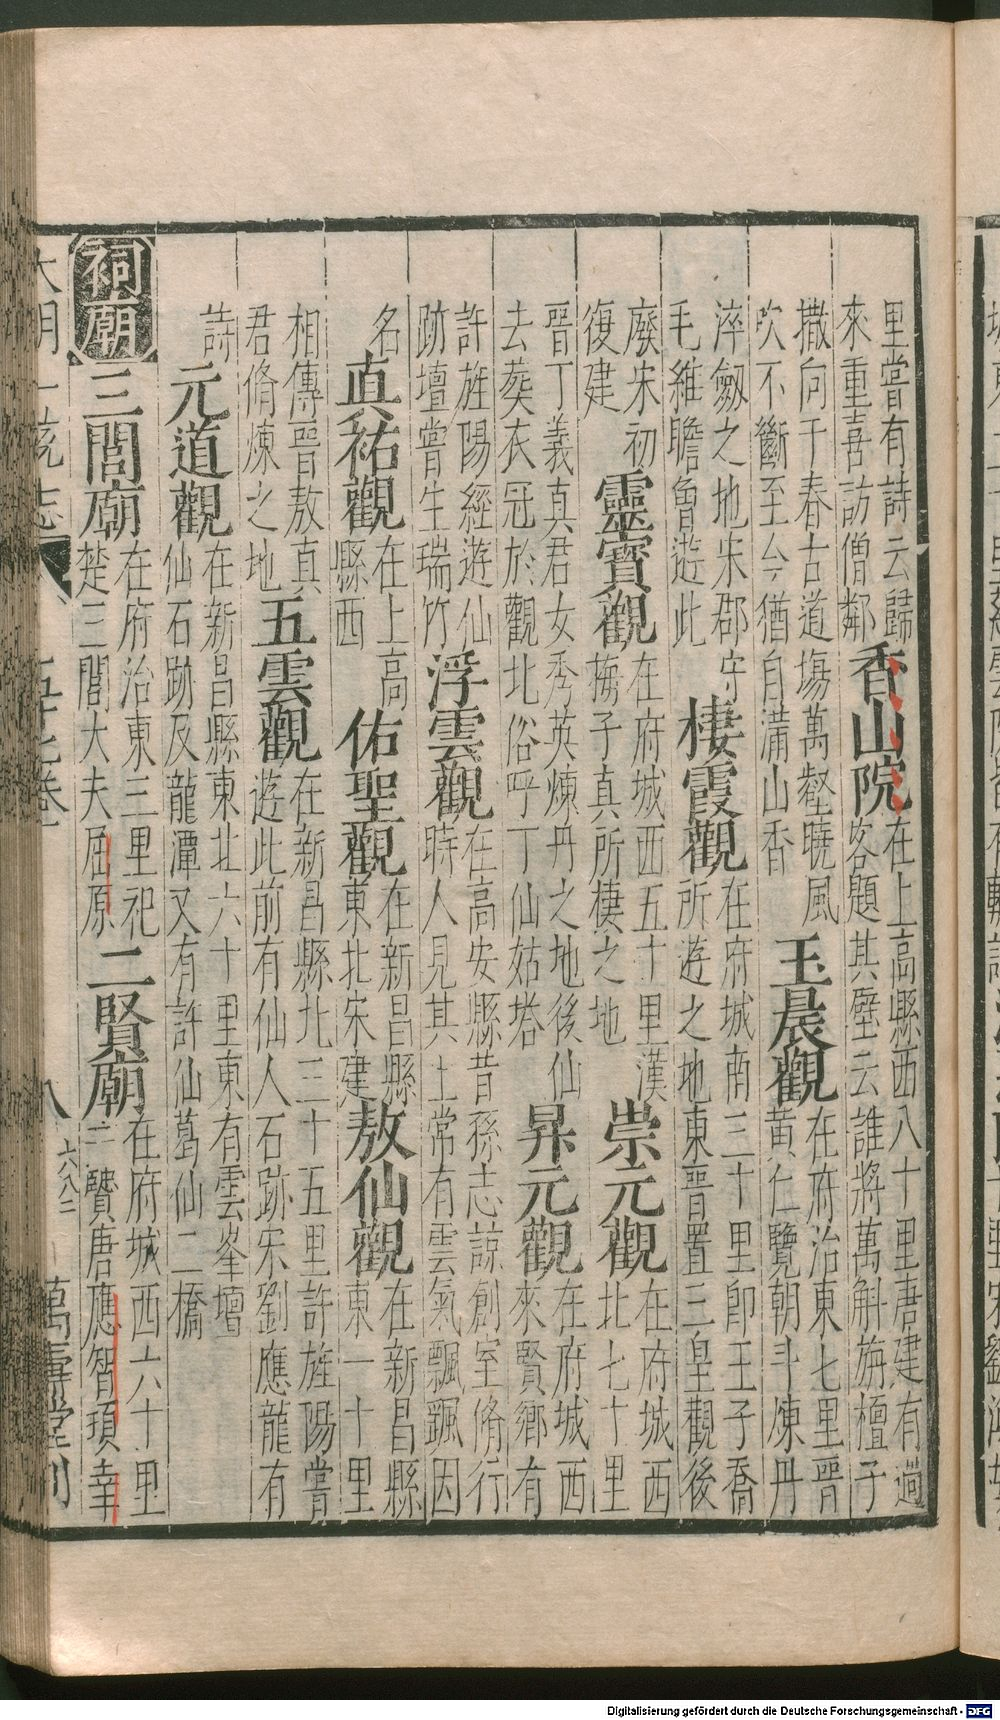 里嘗有詩云歸來重喜訪僧鄰香山院在上高縣西八十里唐建有過客題其壁云誰將萬斛旃檀子
撒向千春古道塲萬壑曉風吹不斷至今猶自滿山香玉晨觀在府治東七里晉黃仁覽朝斗煉丹
淬劒之地宋郡守毛維瞻曾遊此棲霞觀在府城南三十里即王子喬所遊之地東晉置三皇觀後
廢宋初復建靈寶觀在府城西五十里漢梅子真所棲之地崇元觀在府城西北七十里
晉丁義真君女秀英煉丹之地後仙去葬衣冠於觀北俗呼丁仙姑塔昇元觀在府城西來賢鄉有
許旌陽經遊仙跡壇嘗生瑞竹浮雲觀在高安縣昔孫志諒創室脩行時人見其上常有雲氣飄飄因
名真祐觀在上高縣西佑聖觀在新昌縣東北宋建敖仙觀在新昌縣東一十里
相傳晉敖真君脩煉之地五雲觀在新昌縣北三十五里許旌陽嘗遊此前有仙人石跡宋劉應龍有
詩元道觀在新昌縣東北六十里東有雲峯壇仙石跡及龍潭又有許仙葛仙二橋
祠廟三閭廟在府治東三里祀楚三閭大夫屈原二賢廟在府城西六十里二賢唐應智頊幸
大明一統志 五十七卷 八 六八二 萬壽堂刊
Digitalisierung gefördert durch die Deutsche Forschungsgemeinschaft - DFG